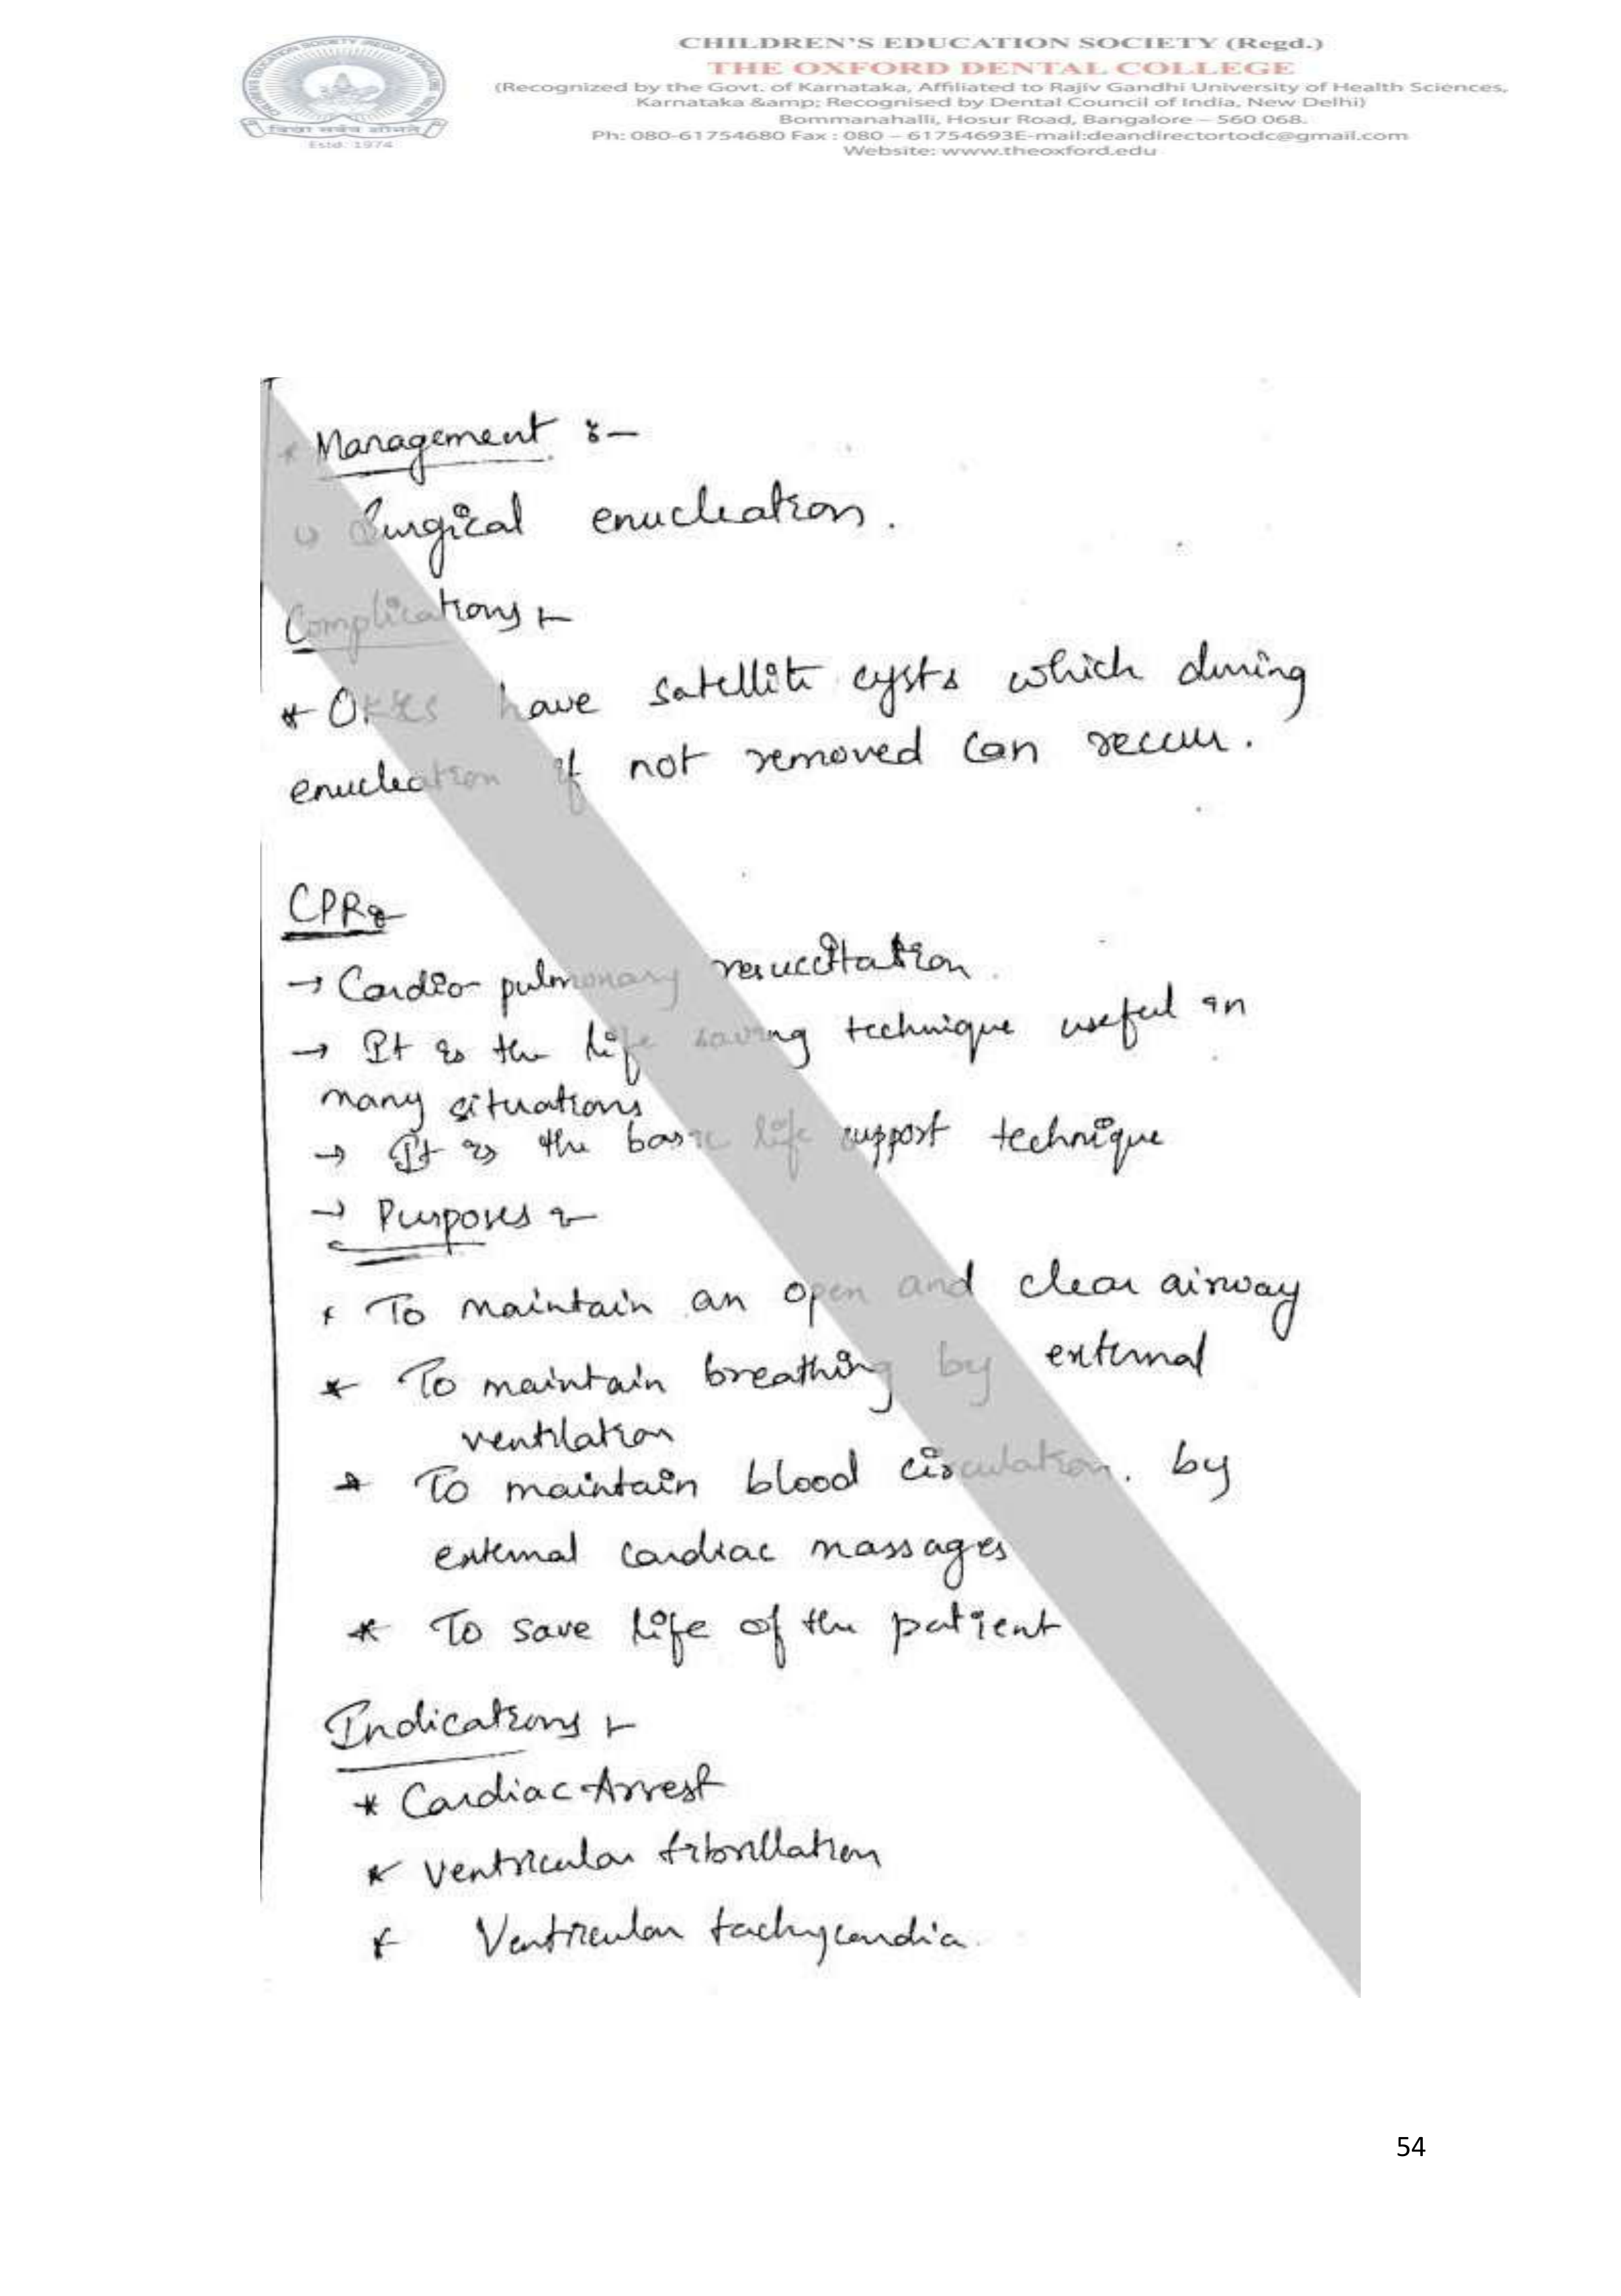 CHILDREN'S EDUCATION SOCIETY (Regd.)
THE OXFORD DENTAL COLLEGE
(Recognized by the Govt. of Karnataka, Affiliated to Rajiv Gandhi University of Health Sciences,
Karnataka &amp; Recognised by Dental Council of India, New Delhi)
Bommanahalli, Hosur Road, Bangalore – 560 068.
Ph: 080-61754680 Fax : 080 – 61754693E-mail:deandirectortodc@gmail.com
Website: www.theoxford.edu
Estd: 1974
* Management :-
Surgical enucleation.
Complications :-
* OKCs have satellite cysts which during
enucleation if not removed can recur.
CPR:-
→ Cardio pulmonary resuccitation.
→ It is the life saving technique useful in
many situations
→ It is the basic life support technique
→ Purposes :-
* To maintain an open and clear airway
* To maintain breathing by external
ventilation
* To maintain blood circulation. by
external cardiac massages
* To save life of the patient
Indications :-
* Cardiac Arrest
* Ventricular fibrillation
* Ventricular tachycardia.
54